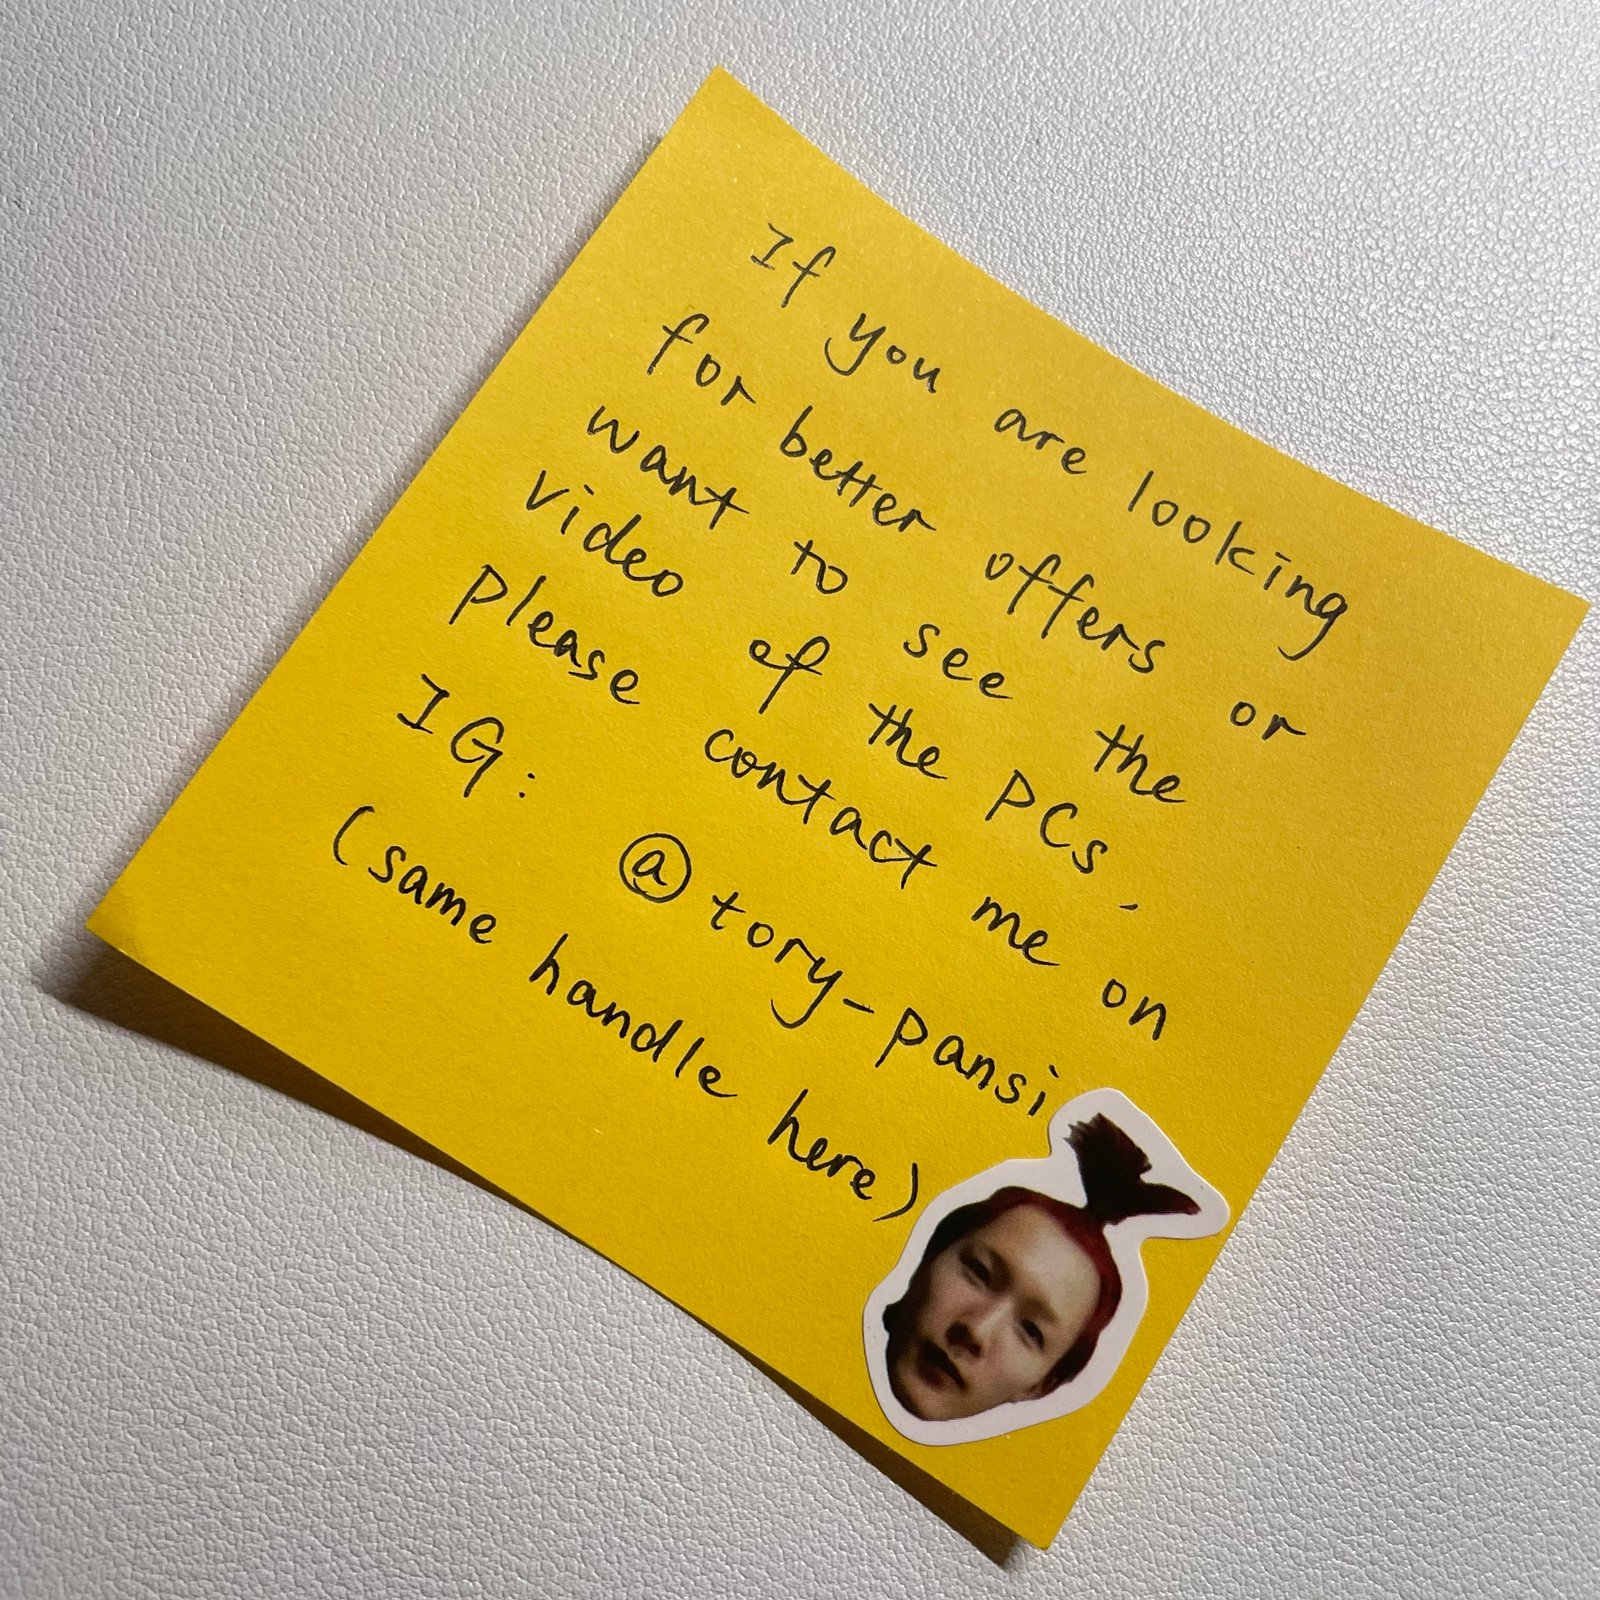 If you are looking
for better offers or
want to see the
video of the PCs,
please contact me on
IG: @tory-pansi
(same handle here)